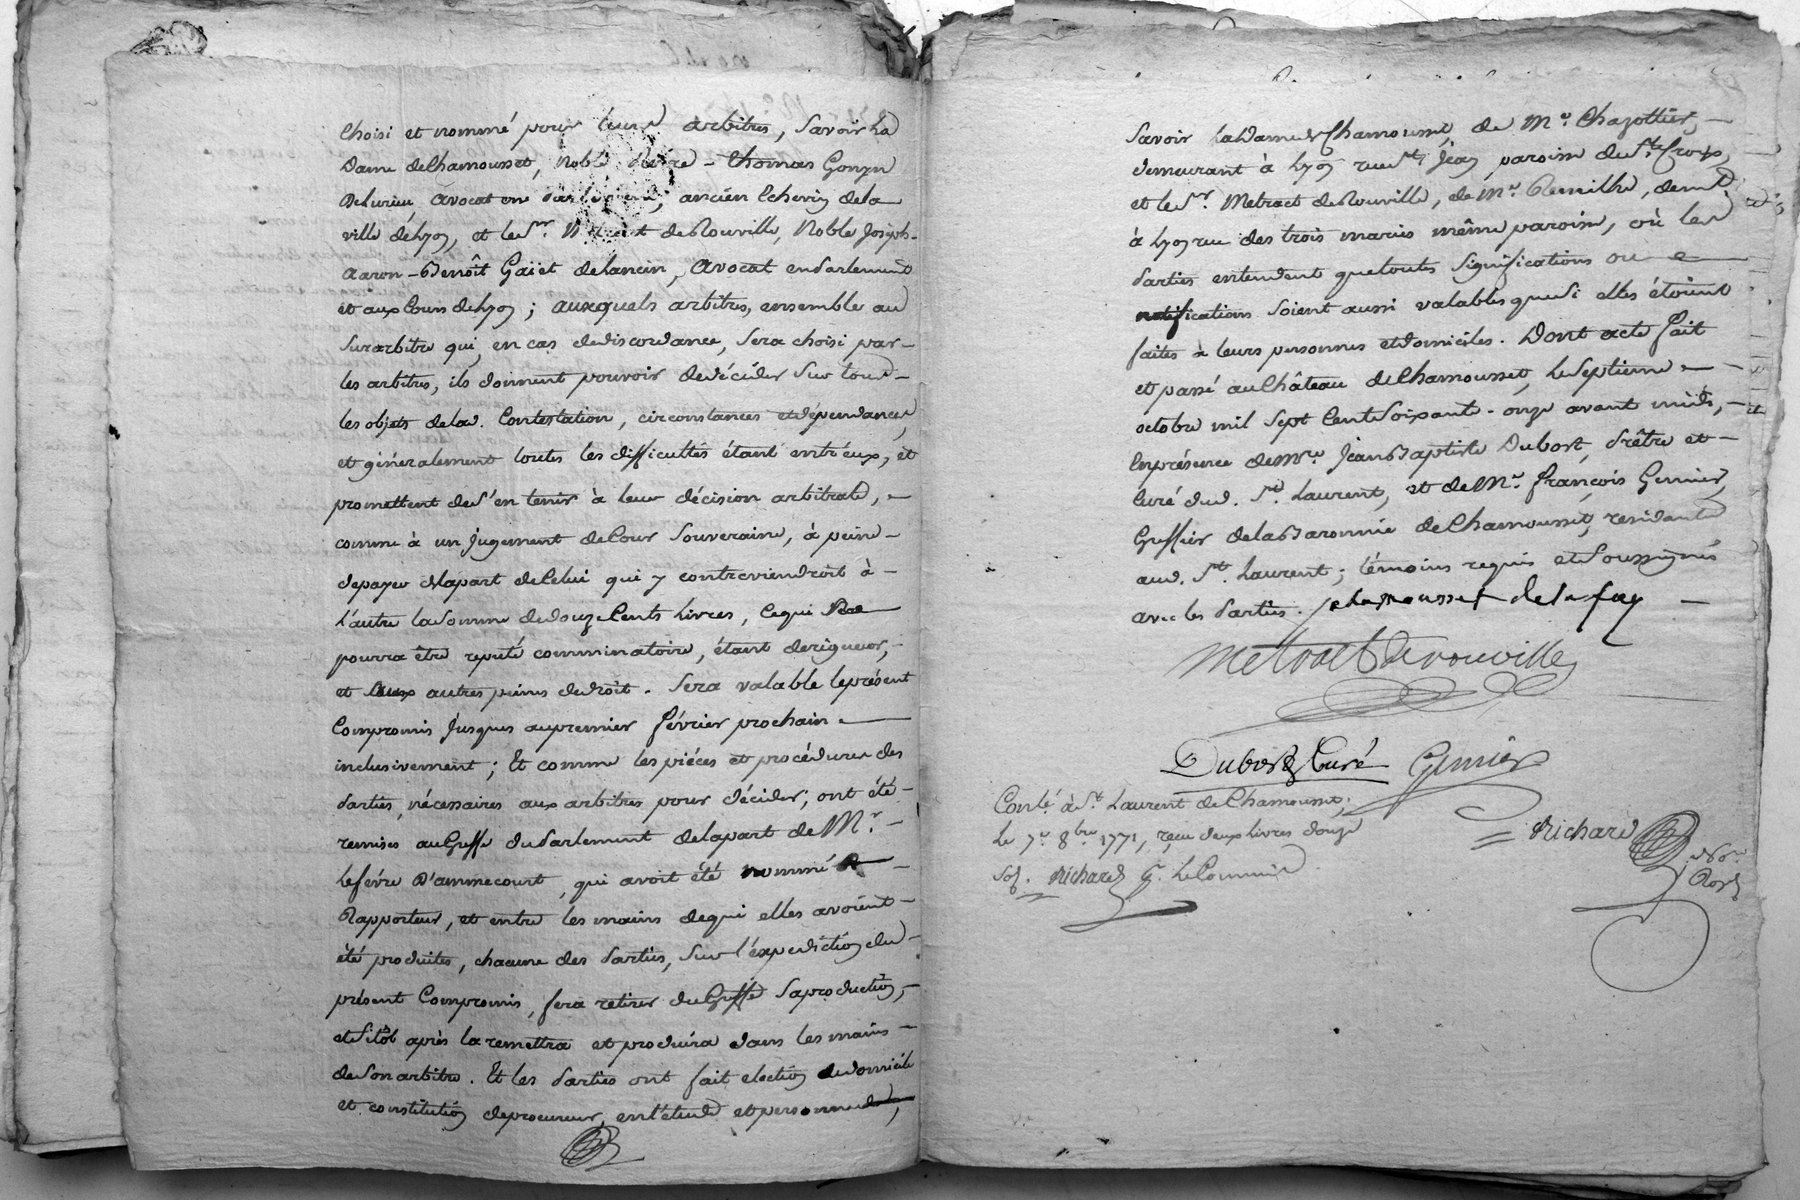 Choisi et nommé pour leurs arbitres, Savoir La
Dame de Chamousset, Noble Pierre - Thomas Gonyn
De Lurieu, Avocat en Parlement, ancien Echevin de la
ville de Lyon, et le Sr. Metract de Rouville, Noble Joseph-
Aaron-Benoît Gaïet de Lancin, Avocat en Parlement
et aux Cours de Lyon; auxquels arbitres, ensemble au
Surarbitre qui, en cas de discordance, Sera choisi par-
les arbitres, ils donnent pouvoir de décider Sur tous-
les objets de lad. Contestation, circonstances et dépendances,
et généralement toutes les difficultés étant entr'eux, et
promettent de S'en tenir à leur décision arbitrale, -
comme à un Jugement de Cour Souveraine, à peine-
de payer de la part de Celui qui y contreviendroit à-
L'autre la Somme de douze Cents Livres, Ce qui ne
pourra être reputé comminatoire, étant de rigueur,-
et aux autres peines de droit. Sera valable le présent
Compromis Jusques au premier Février prochain -
inclusivement; Et comme les piéces et procédures des
Parties, nécessaires aux arbitres pour décider, ont été-
remises au Greffe du Parlement de la part de Mr.-
Lefévre D'ammecourt, qui avoit été nommé -
Rapporteur, et entre les mains de qui elles avoient-
été produites, chacune des Parties, Sur l'éxpedition du-
présent Compromis, fera retirer du Greffe Sa production,-
et Sitôt après la remettra et produira dans les mains-
de Son arbitre. Et les Parties ont fait election de domicile
et constitution de procureur, en l'étude et personne de,
Savoir la Dame de Chamousset, de Me. Chazottier, -
demeurant à Lyon rue St. Jean paroisse de Ste. Croix,
et le Sr. Metract de Rouville, de Me. , demt.
à Lyon rue des trois maries même paroisse, où les
Parties entendent que toutes Significations ou -
notifications Soient aussi valables que Si elles étoient
faites à leurs personnes et domiciles. Dont acte fait
et passé au Château de Chamousset, le Septieme -
octobre mil Sept Cent Soixante-onze avant midi, -
En présence de Mre. Jean Baptiste Dubost, Prêtre et -
Curé dud. St. Laurent, et de Me. François Genier,
Greffier de la Baronnie de Chamousset, residants
aud. St. Laurent; témoins requis et Soussignés
avec les Parties. Chamousset de la fay
Metract De rouville
Dubost Curé Genier
Conlé à St. Laurent de Chamousset;
Le 7e. 8bre 1771, reçu deux Livres douze
Sols. Richard
Richard
Nore.
Royl